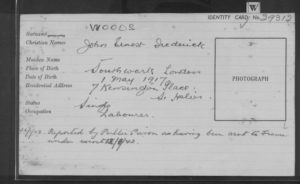 W
IDENTITY CARD No. 29312
WOODS
Surname
Christian Names John Ernest Frederick
Maiden Name
Place of Birth Southwark London
Date of Birth 1 May 1917
Residential Address 7 Kensington Place
St. Helier
Status
Occupation Labourer.
PHOTOGRAPH
Reported by Public Prison as having been sent to France
under escort